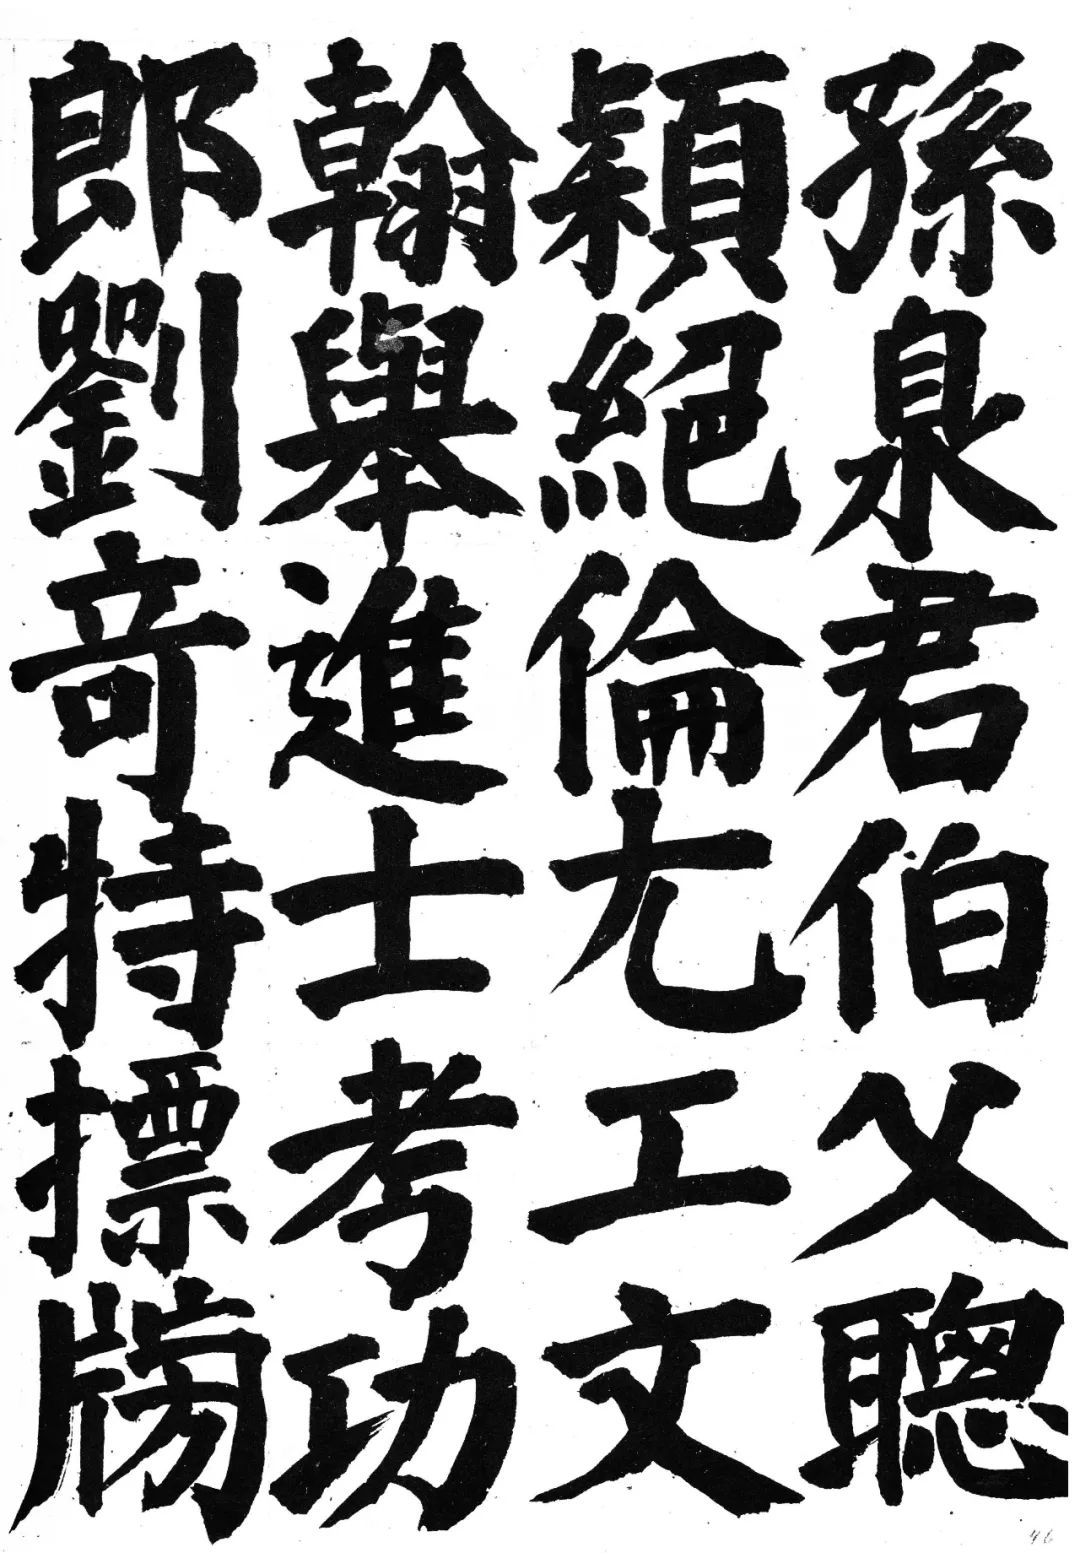 孫泉君伯父聰
穎絕倫尢工文
翰舉進士考功
郎劉竒特摽牓
46